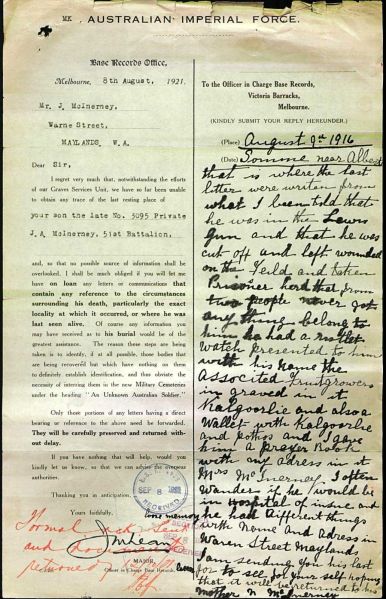 MK.
AUSTRALIAN IMPERIAL FORCE.
Base Records Office,
Melbourne, 8th August, 1921.
Mr. J. McInerney,
Warne Street,
MAYLANDS, W.A.
Dear Sir,
I regret very much that, notwithstanding the efforts
of our Graves Services Unit, we have so far been unable
to obtain any trace of the last resting place of
your son the late No. 5095 Private
J.A. McInerney, 51st Battalion,
and, so that no possible source of information shall be
overlooked, I shall be much obliged if you will let me
have on loan any letters or communications that
contain any reference to the circumstances
surrounding his death, particularly the exact
locality at which it occurred, or where he was
last seen alive. Of course any information you
may have received as to his burial would be of the
greatest assistance. The reason these steps are being
taken is to identify, if at all possible, those bodies that
are being recovered but which have nothing on them
to definitely establish identification, and thus obviate the
necessity of interring them in the new Military Cemeteries
under the heading "An Unknown Australian Soldier."
Only those portions of any letters having a direct
bearing or reference to the above need be forwarded.
They will be carefully preserved and returned with-
out delay.
If you have nothing that will help, would you
kindly let us know, so that we can advise the overseas
authorities.
Thanking you in anticipation.
Yours faithfully,
J M Lean
MAJOR,
Officer in Charge Base Records
SEP 8
returned
To the Officer in Charge Base Records,
Victoria Barracks,
Melbourne.
(KINDLY SUBMIT YOUR REPLY HEREUNDER.)
(Place) August 9th 1916
(Date) Somme near Albert
that is where the last
litter were writan from
what I been told that
he was in the Lewis
Gun and that he was
cut off and left wounded
on the Feild and taken
Prisoner herd that from
two people never got
any thing belong to
him he had a
watch presented to him
with his name the
Associted Fruitgrowers
in graved in it
Kalgoorlie and also a
Wallet with Kalgoorlie
and I gave
him a Prayer Book
with my adress in it
Mrs McInerney, I often
Wander if he would be
in Hospital of insne and
he had different things
with Name and Adress in
Waren Street Maylands
I am sending you his last
for to see for your self hoping
that it will be returned to his
Mother N. McInerney